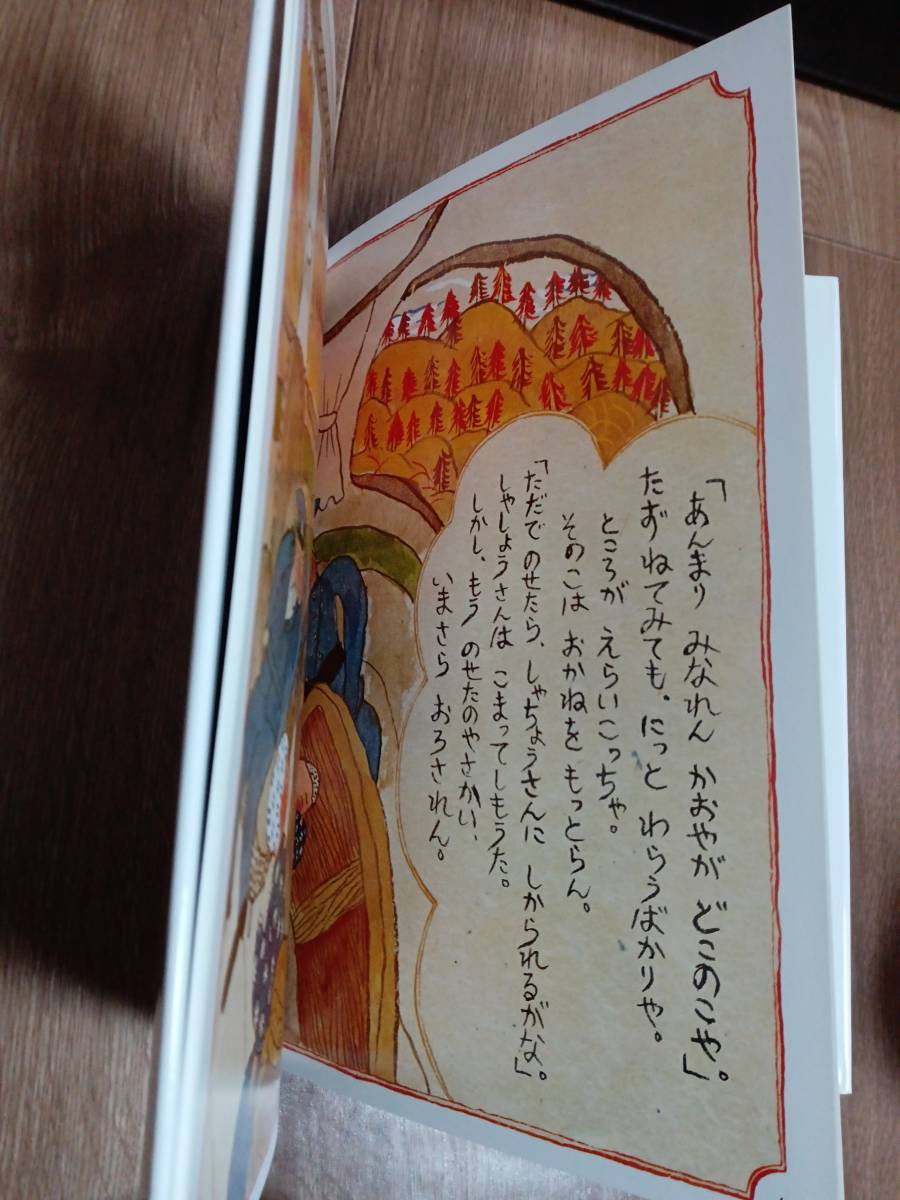 「あんまり みなれん かおやが どこのこや」。
たずねてみても、にっと わらうばかりや。
ところが えらいこっちゃ。
そのこは おかねを もっとらん。
「ただで のせたら、しゃちょうさんに しかられるがな」。
しゃしょうさんは こまってしもうた。
しかし、もう のせたのやさかい、
いまさら おろされん。